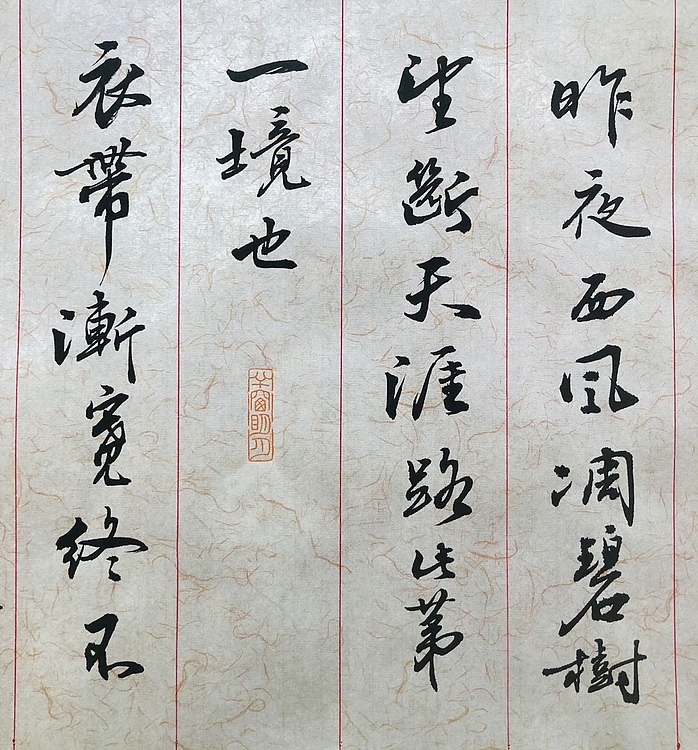 昨夜西風凋碧樹
望斷天涯路此第
一境也
半窗明月
衣帶漸寬終不